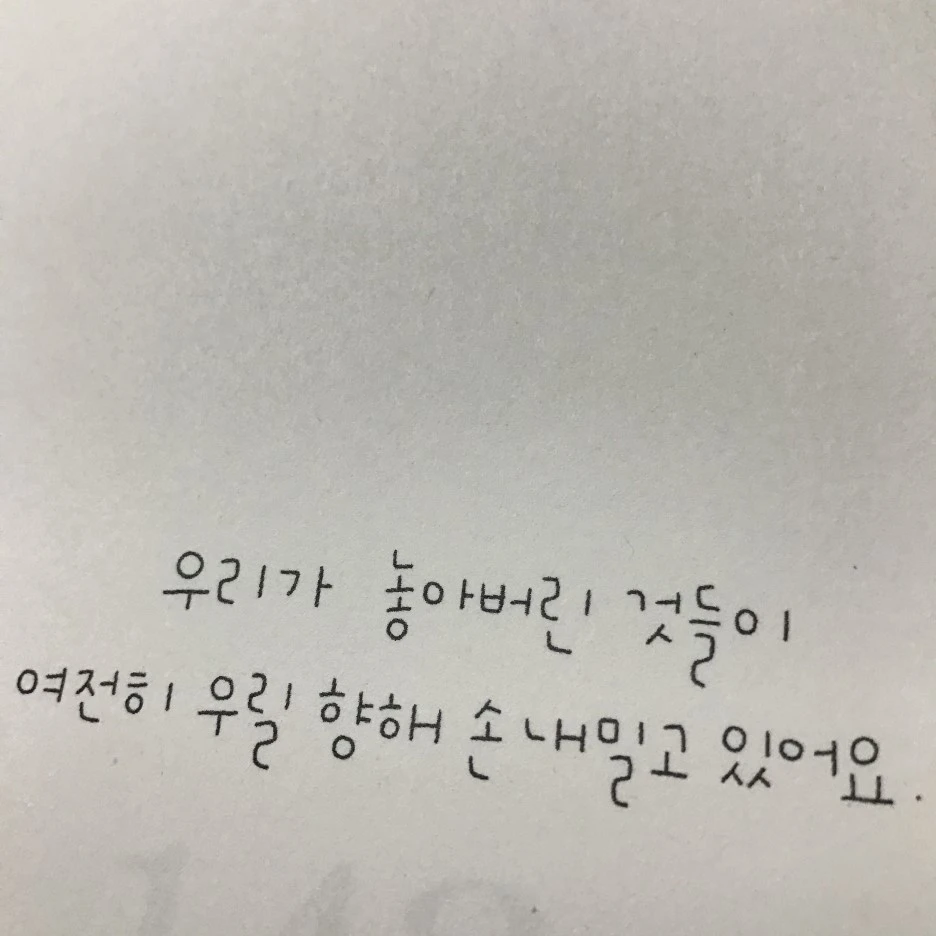 우리가 놓아버린 것들이
여전히 우릴 향해 손 내밀고 있어요.